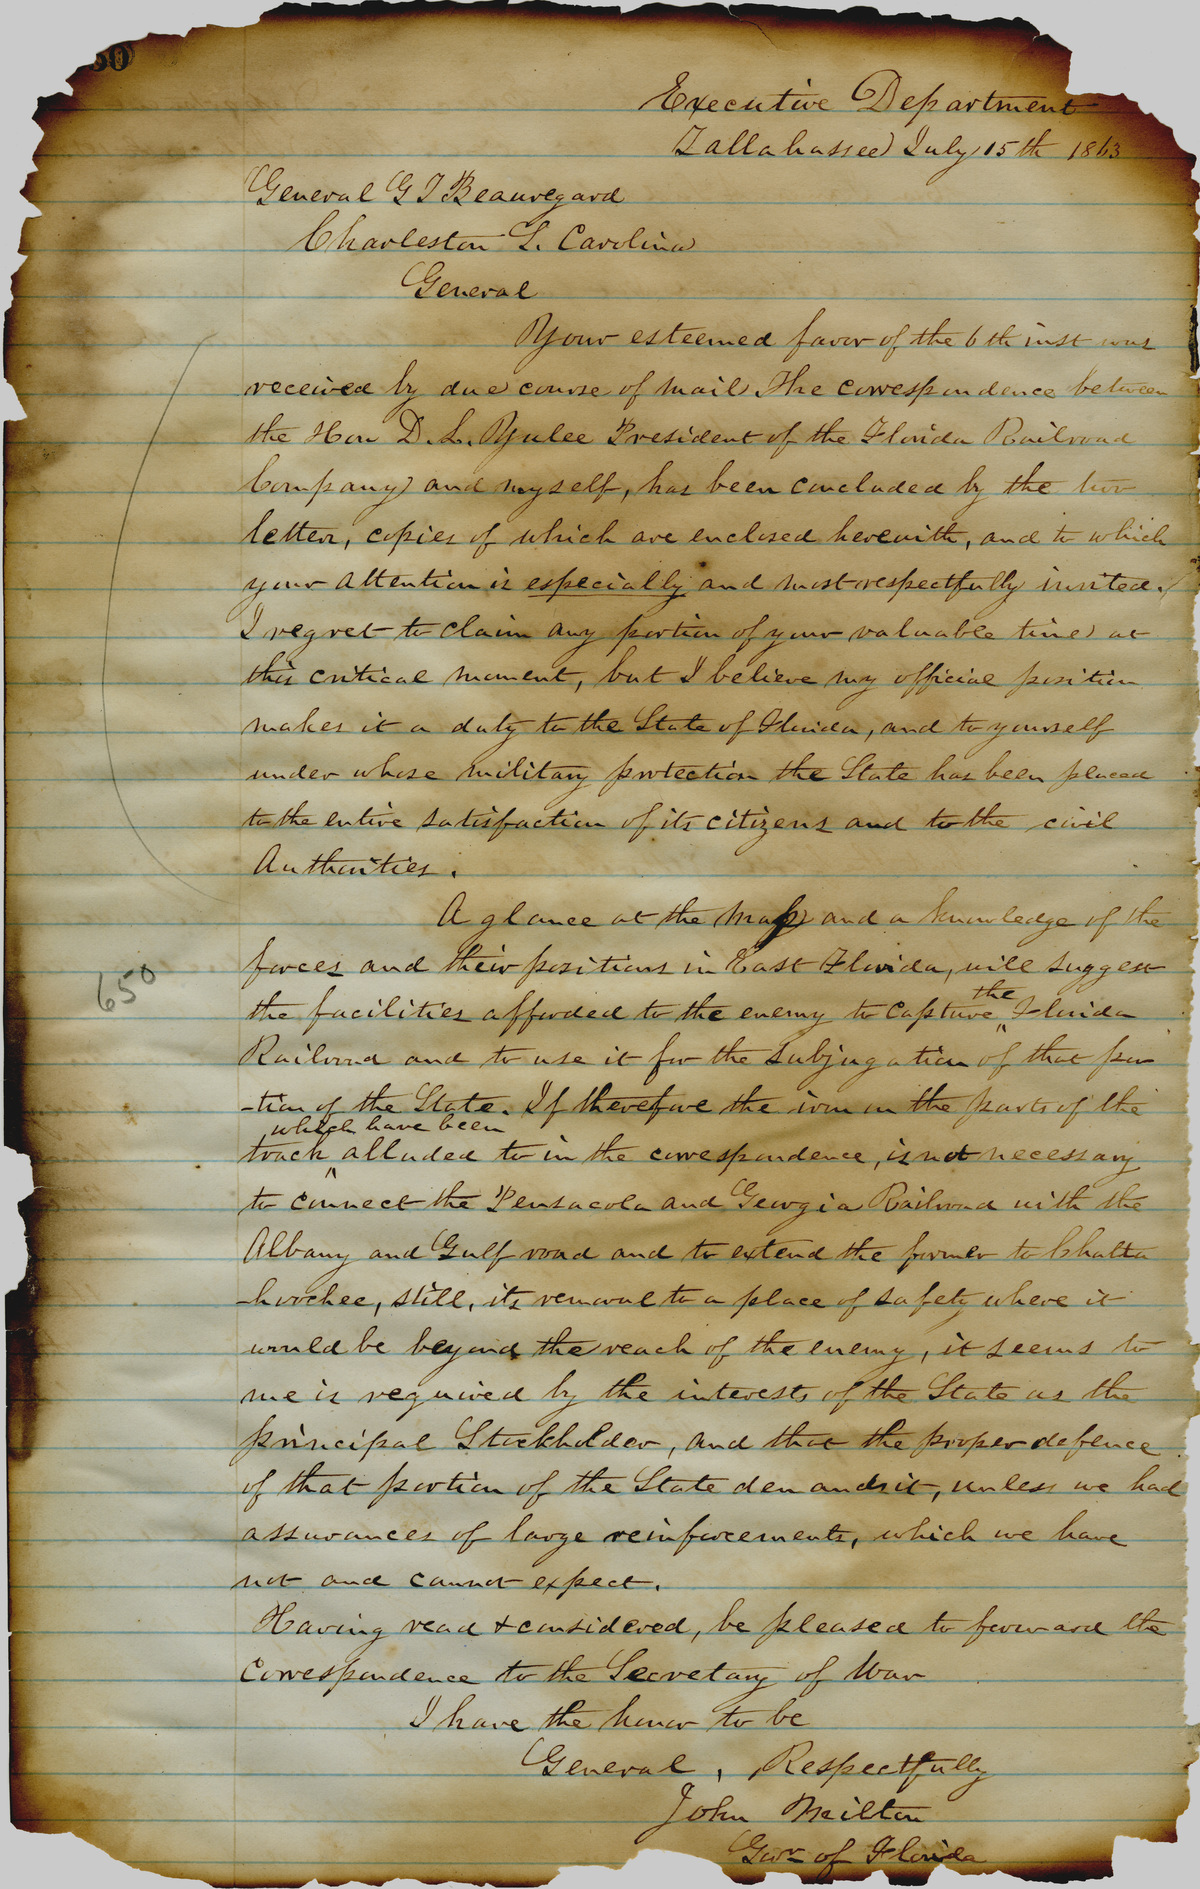 50
Executive Department
Tallahassee July 15th 1863
General G T Beauregard
Charleston S. Carolina
General
Your esteemed favor of the 6th inst was
received by due course of mail. The correspondence between
the Hon D. L. Yulee President of the Florida Railroad
Company and myself, has been concluded by the two
letters, copies of which are enclosed herewith, and to which
your attention is especially and most respectfully invited.
I regret to claim any portion of your valuable time at
this critical moment, but I believe my official position
makes it a duty to the State of Florida, and to yourself
under whose military protection the State has been placed
to the entire satisfaction of its citizens and to the civil
Authorities.
A glance at the map and a knowledge of the
forces and their positions in East Florida, will suggest
650
the facilities afforded to the enemy to capture the Florida
Railroad and to use it for the subjugation of that por
-tion of the State. If therefore the iron on the parts of the
track which have been alluded to in the correspondence, is not necessary
to connect the Pensacola and Georgia Railroad with the
Albany and Gulf road and to extend the former to Chatta
-hoochee, still, its removal to a place of safety where it
would be beyond the reach of the enemy, it seems to
me is required by the interests of the State as the
principal Stockholder, and that the proper defence
of that portion of the State demands it, unless we had
assurances of large reinforcements, which we have
not and cannot expect.
Having read & considered, be pleased to forward the
correspondence to the Secretary of War
I have the honor to be
General, Respectfully
John Milton
Govr of Florida